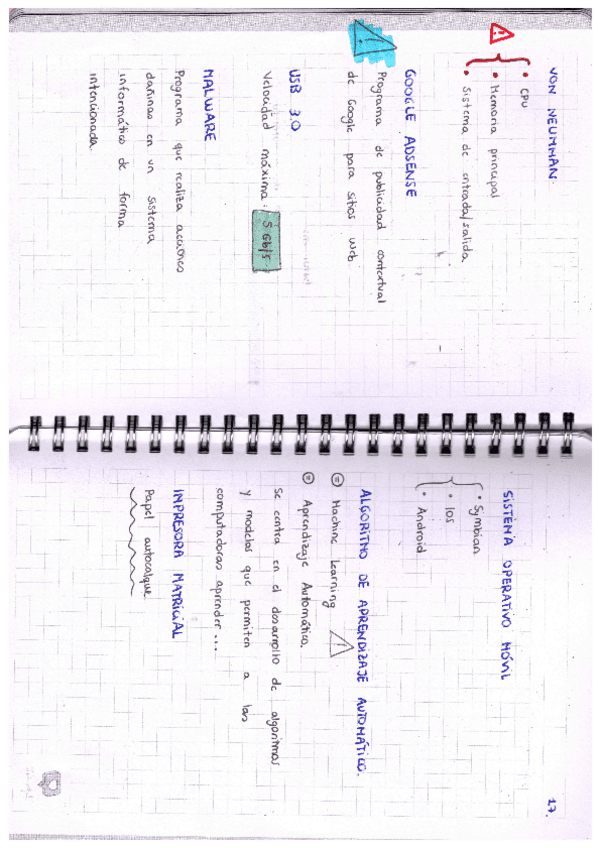 VON NEUMMAN.
• CPU
• Memoria principal
• Sistema de entrada/salida
GOOGLE ADSENSE
Programa de publicidad contextual
de Google para sitios web
USB 3.0
Velocidad máxima: 5 Gb/s
MALWARE
Programa que realiza acciones
dañinas en un sistema
informático de forma
intencionada.
SISTEMA OPERATIVO MÓVIL
• Symbian
• Ios
• Android
ALGORITMO DE APRENDIZAJE AUTOMÁTICO.
= Machine Learning
= Aprendizaje Automático.
Se centra en el desarrollo de algoritmos
y modelos que permiten a las
computadoras aprender ...
IMPRESORA MATRICIAL
Papel autocalque
17.